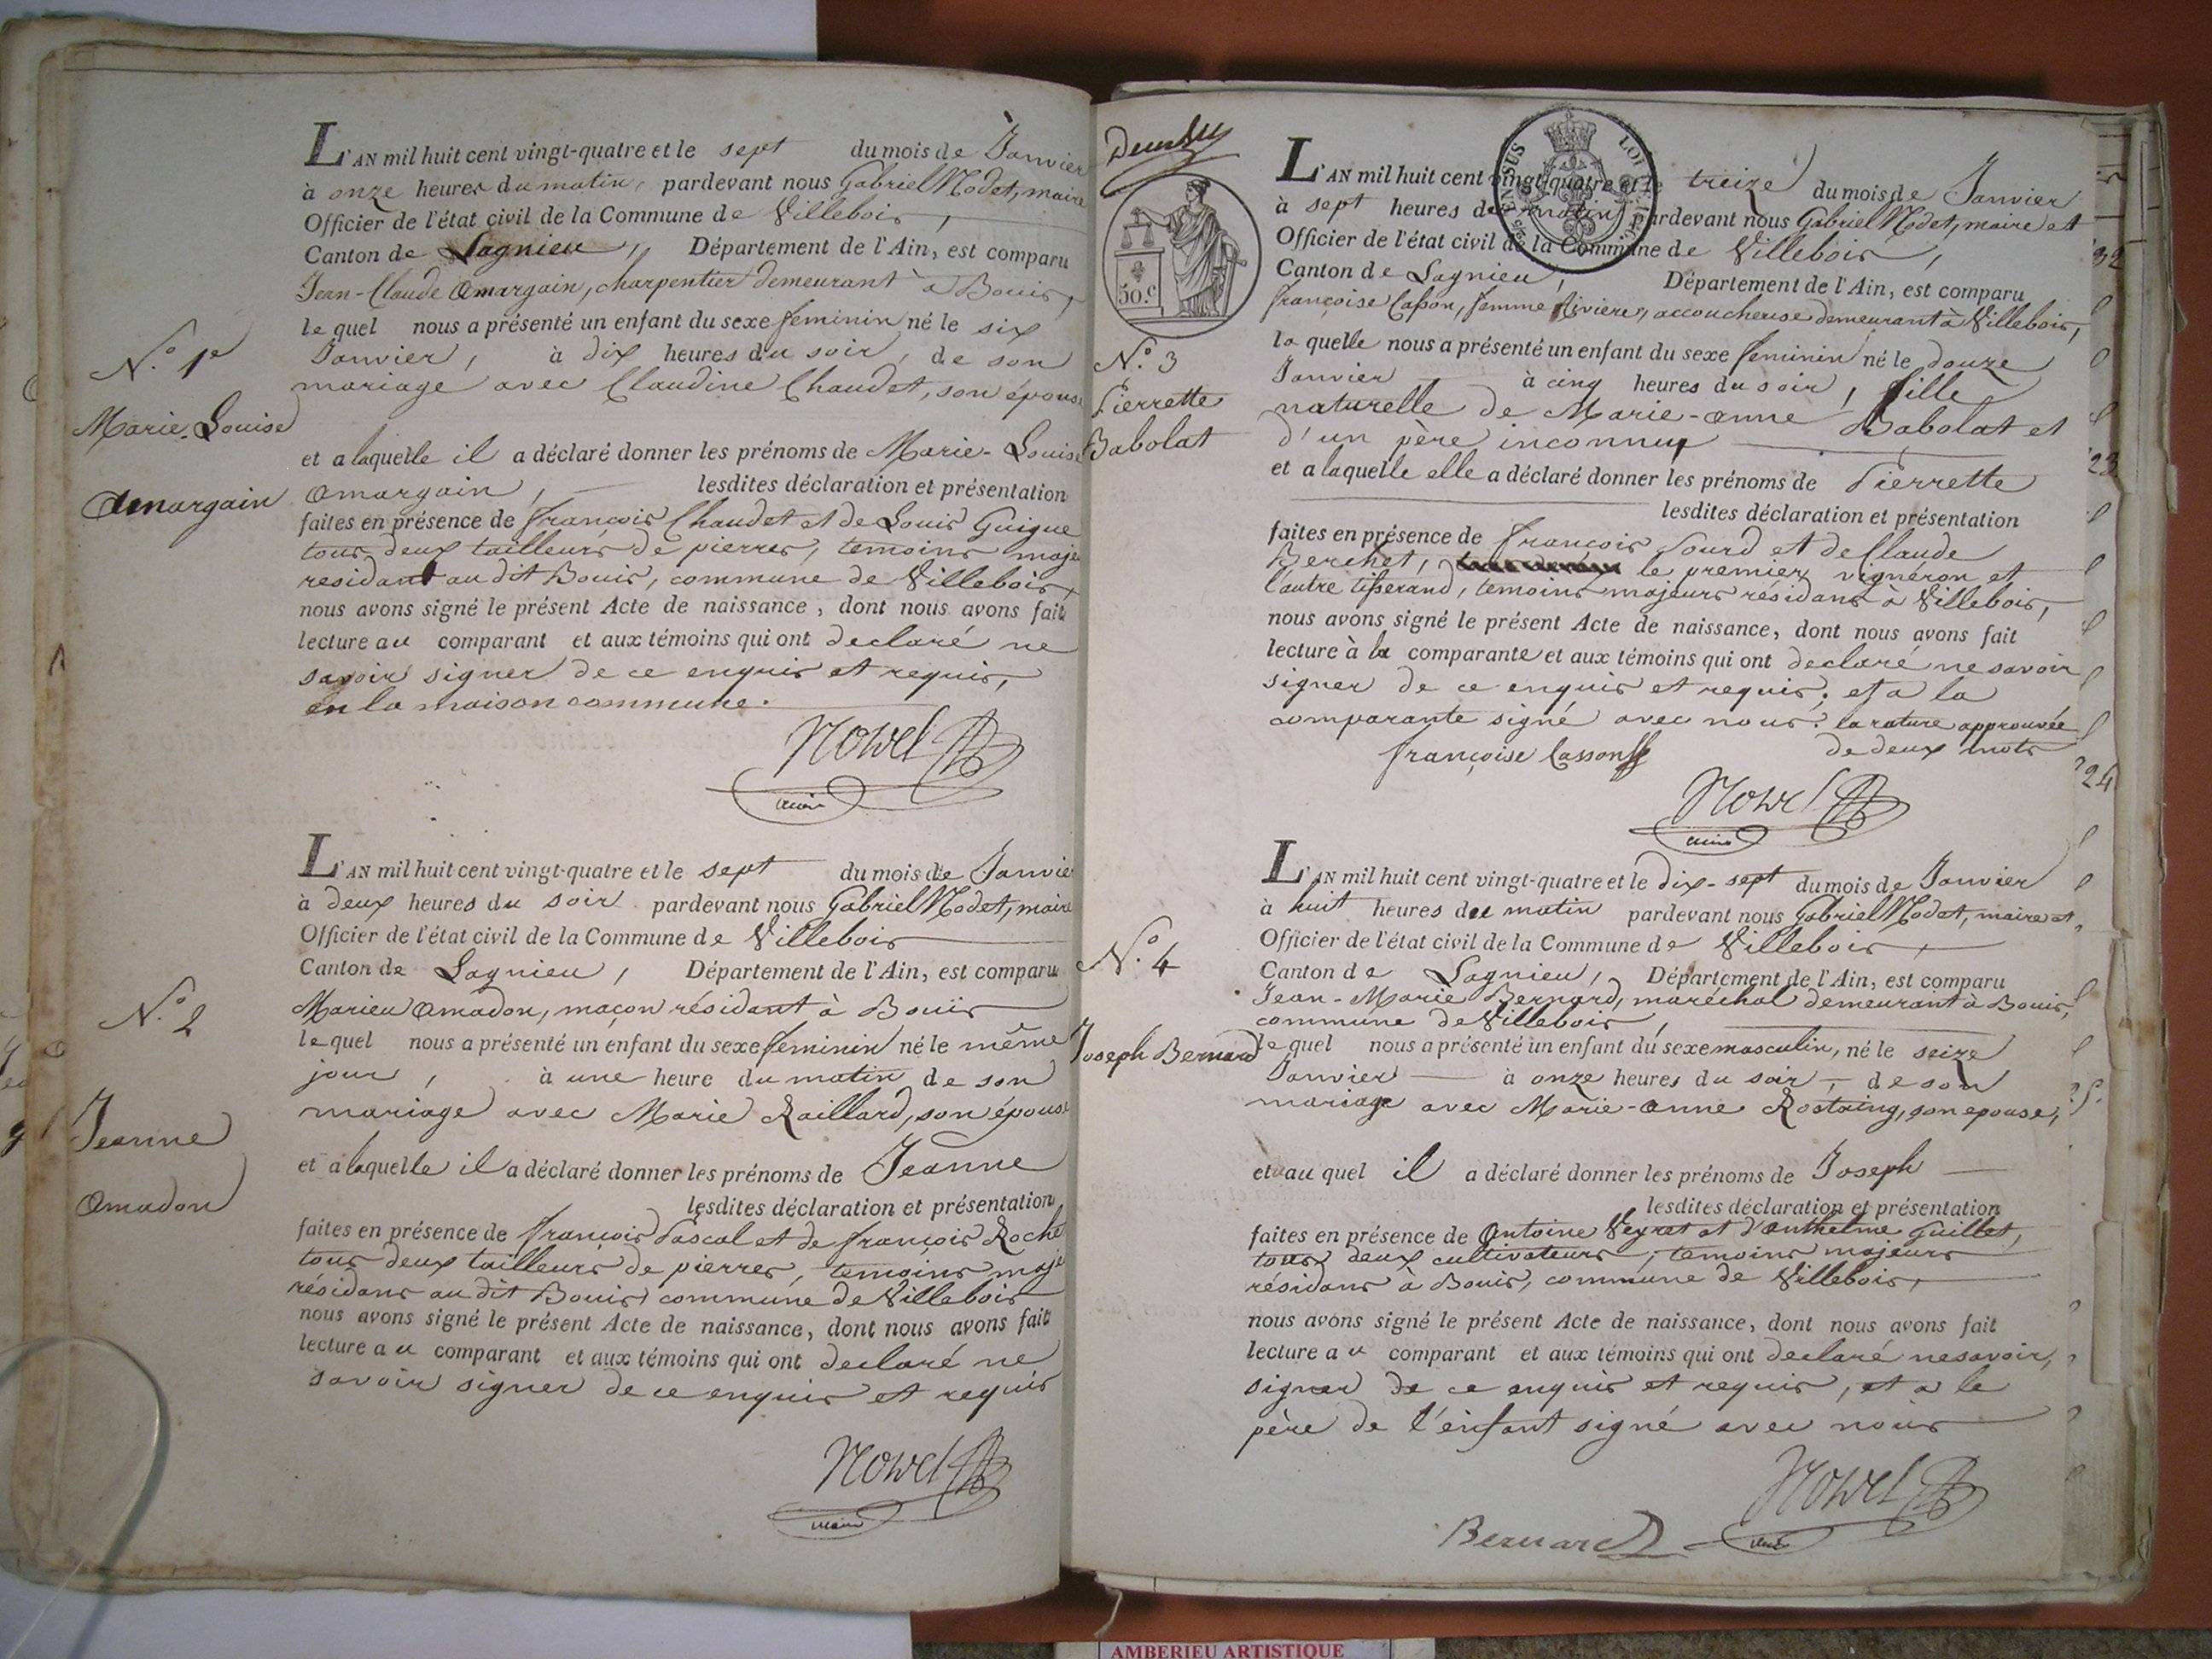 L'AN mil huit cent vingt-quatre et le sept du mois de Janvier
à onze heures du matin, pardevant nous Gabriel Nodet, maire
Officier de l'état civil de la Commune de Villebois,
Canton de Lagnieu, Département de l'Ain, est comparu
Jean-Claude Amargain, charpentier demeurant à Bouis,
le quel nous a présenté un enfant du sexe feminin né le six
Janvier, à dix heures du soir, de son
mariage avec Claudine Chaudet, son épouse
et a laquelle il a déclaré donner les prénoms de Marie-Louise
Amargain, lesdites déclaration et présentation
faites en présence de françois Chaudet et de Louis Guigue
tous deux tailleurs de pierres, temoins maje
residant au dit Bouis, commune de Villebois,
nous avons signé le présent Acte de naissance, dont nous avons fait
lecture au comparant et aux témoins qui ont declaré ne
savoir signer de ce enquis et requis,
en la maison commune.
N.º 1er
Marie-Louise
Amargain
maire
L'AN mil huit cent vingt-quatre et le sept du mois de Janvie
à deux heures du soir pardevant nous Gabriel Nodet, maire
Officier de l'état civil de la Commune de Villebois
Canton de Lagnieu, Département de l'Ain, est comparu
Marieu Amadon, maçon résidant à Bouis
le quel nous a présenté un enfant du sexe feminin né le même
jour, à une heure du matin de son
mariage avec Marie Raillard, son épouse
et a laquelle il a déclaré donner les prénoms de Jeanne
lesdites déclaration et présentation
faites en présence de françois Pascal et de françois Roche
tous deux tailleurs de pierres, temoins maje
résidans au dit Bouis commune de Villebois
nous avons signé le présent Acte de naissance, dont nous avons fait
lecture au comparant et aux témoins qui ont declaré ne
savoir signer de ce enquis et requis
N.º 2
Jeanne
Amadon
maire
50.c
L'AN mil huit cent vingt-quatre et le treize du mois de Janvier
à sept heures du matin pardevant nous Gabriel Nodet, maire et
Officier de l'état civil de la Commune de Villebois,
Canton de Lagnieu, Département de l'Ain, est comparu
françoise Casson, femme Riviere, accoucheuse demeurant à Villebois,
la quelle nous a présenté un enfant du sexe feminin né le douze
Janvier à cinq heures du soir, fille
naturelle de Marie-Anne Babolat et
d'un père inconnu
et a laquelle elle a déclaré donner les prénoms de Pierrette
lesdites déclaration et présentation
faites en présence de françois Sourd et de Claude
Berchet, le premier vignéron et
l'autre tisserand, temoins majeurs résidans à Villebois,
nous avons signé le présent Acte de naissance, dont nous avons fait
lecture à la comparante et aux témoins qui ont declaré ne savoir
signer de ce enquis et requis; et a la
comparante signé avec nous. la rature approuvée
de deux mots
françoise Casson
N.º 3
Pierrette
Babolat
maire
L'AN mil huit cent vingt-quatre et le dix-sept du mois de Janvier
à huit heures du matin pardevant nous Gabriel Nodet, maire et
Officier de l'état civil de la Commune de Villebois,
Canton de Lagnieu, Département de l'Ain, est comparu
Jean-Marie Bernard, maréchal demeurant à Bouis,
commune de Villebois,
le quel nous a présenté un enfant du sexe masculin, né le seize
Janvier à onze heures du soir, de son
mariage avec Marie-Anne Rostaing, son epouse,
et au quel il a déclaré donner les prénoms de Joseph
lesdites déclaration et présentation
faites en présence de Antoine Veyret et d'Anthelme Guillet,
tous deux cultivateurs, temoins majeurs
résidans à Bouis, commune de Villebois,
nous avons signé le présent Acte de naissance, dont nous avons fait
lecture au comparant et aux témoins qui ont declaré ne savoir,
signer de ce enquis et requis, et a le
père de l'enfant signé avec nous
N.º 4
Joseph Bernard
Bernard
maire
AMBERIEU ARTISTIQUE